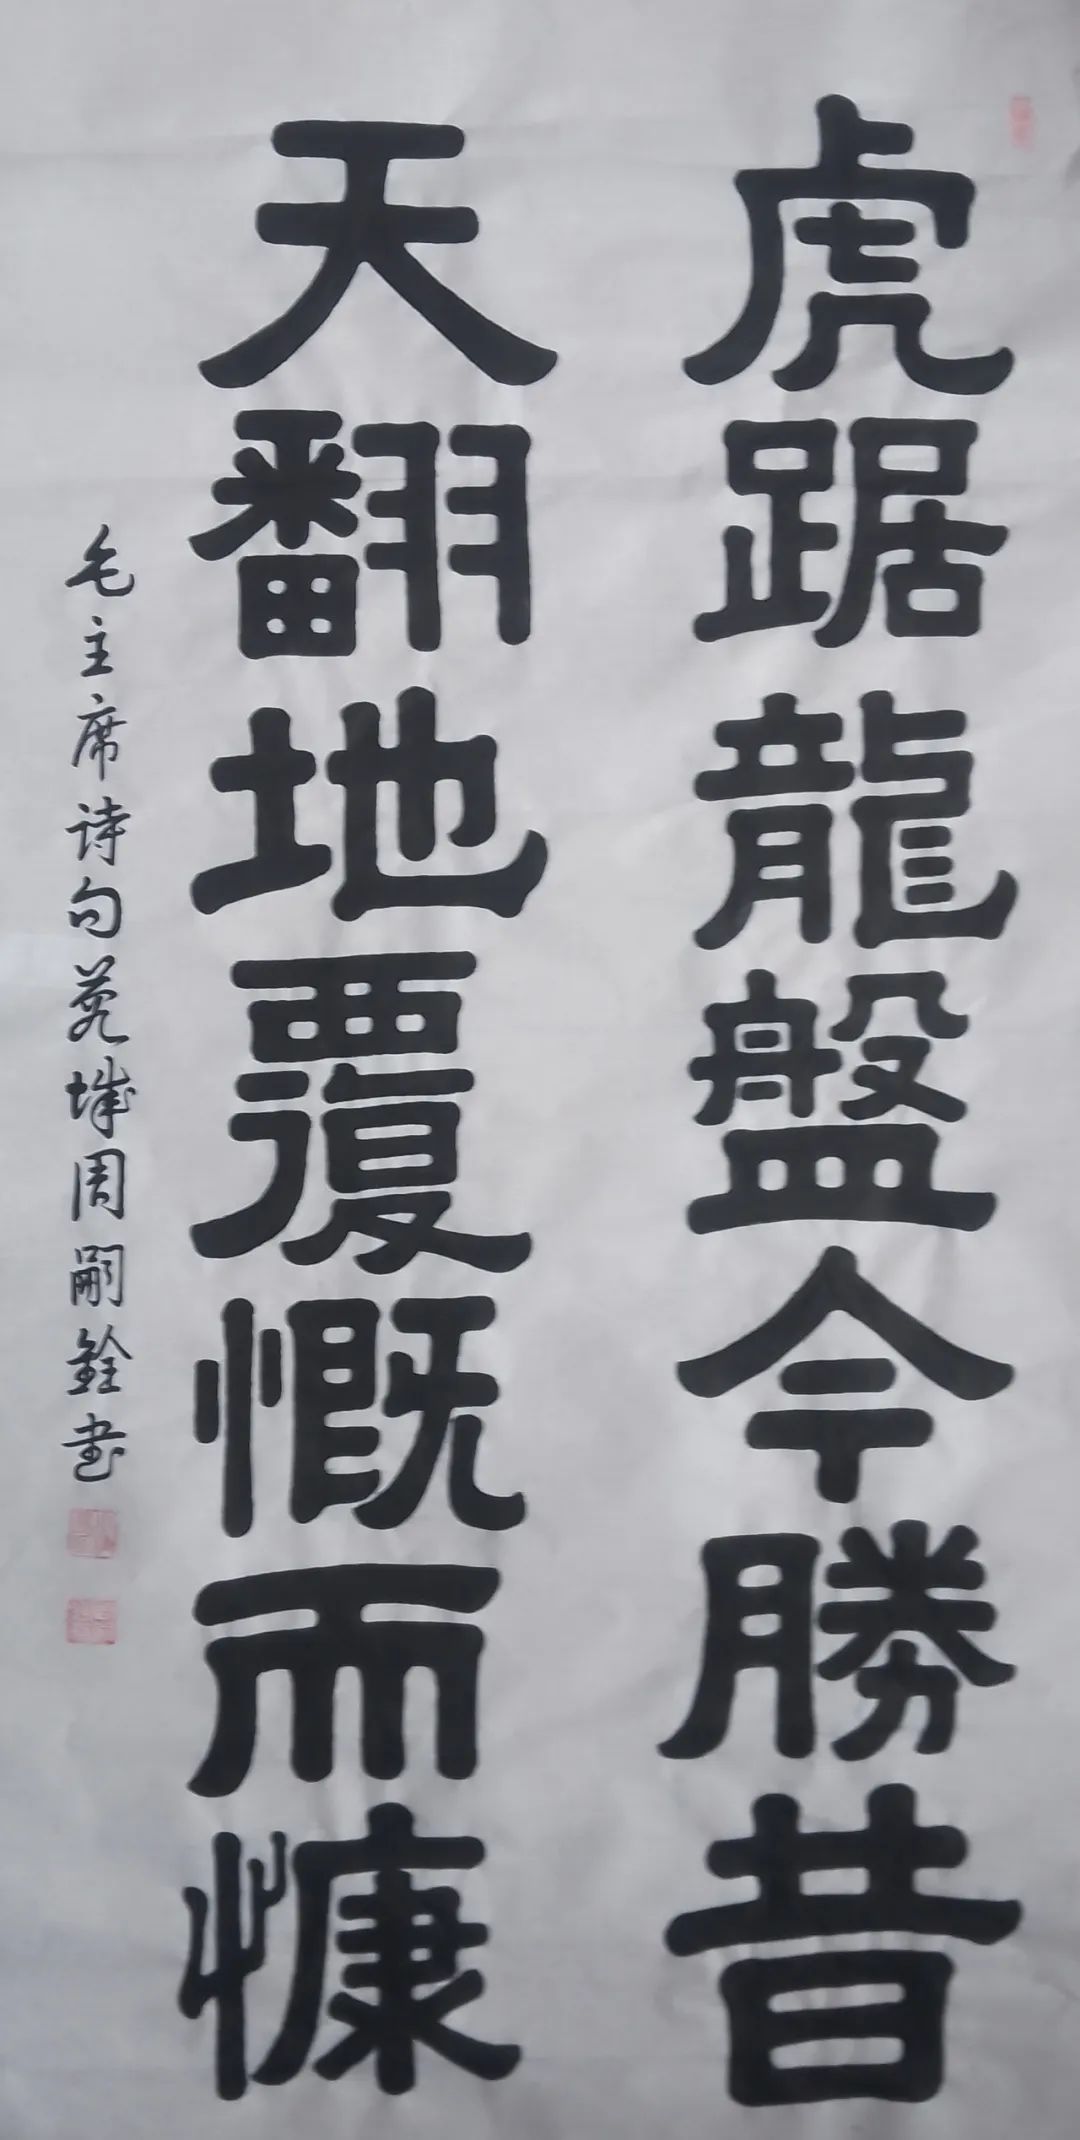 虎踞龍盤今勝昔
天翻地覆慨而慷
毛主席诗句蒄城周嗣銓书